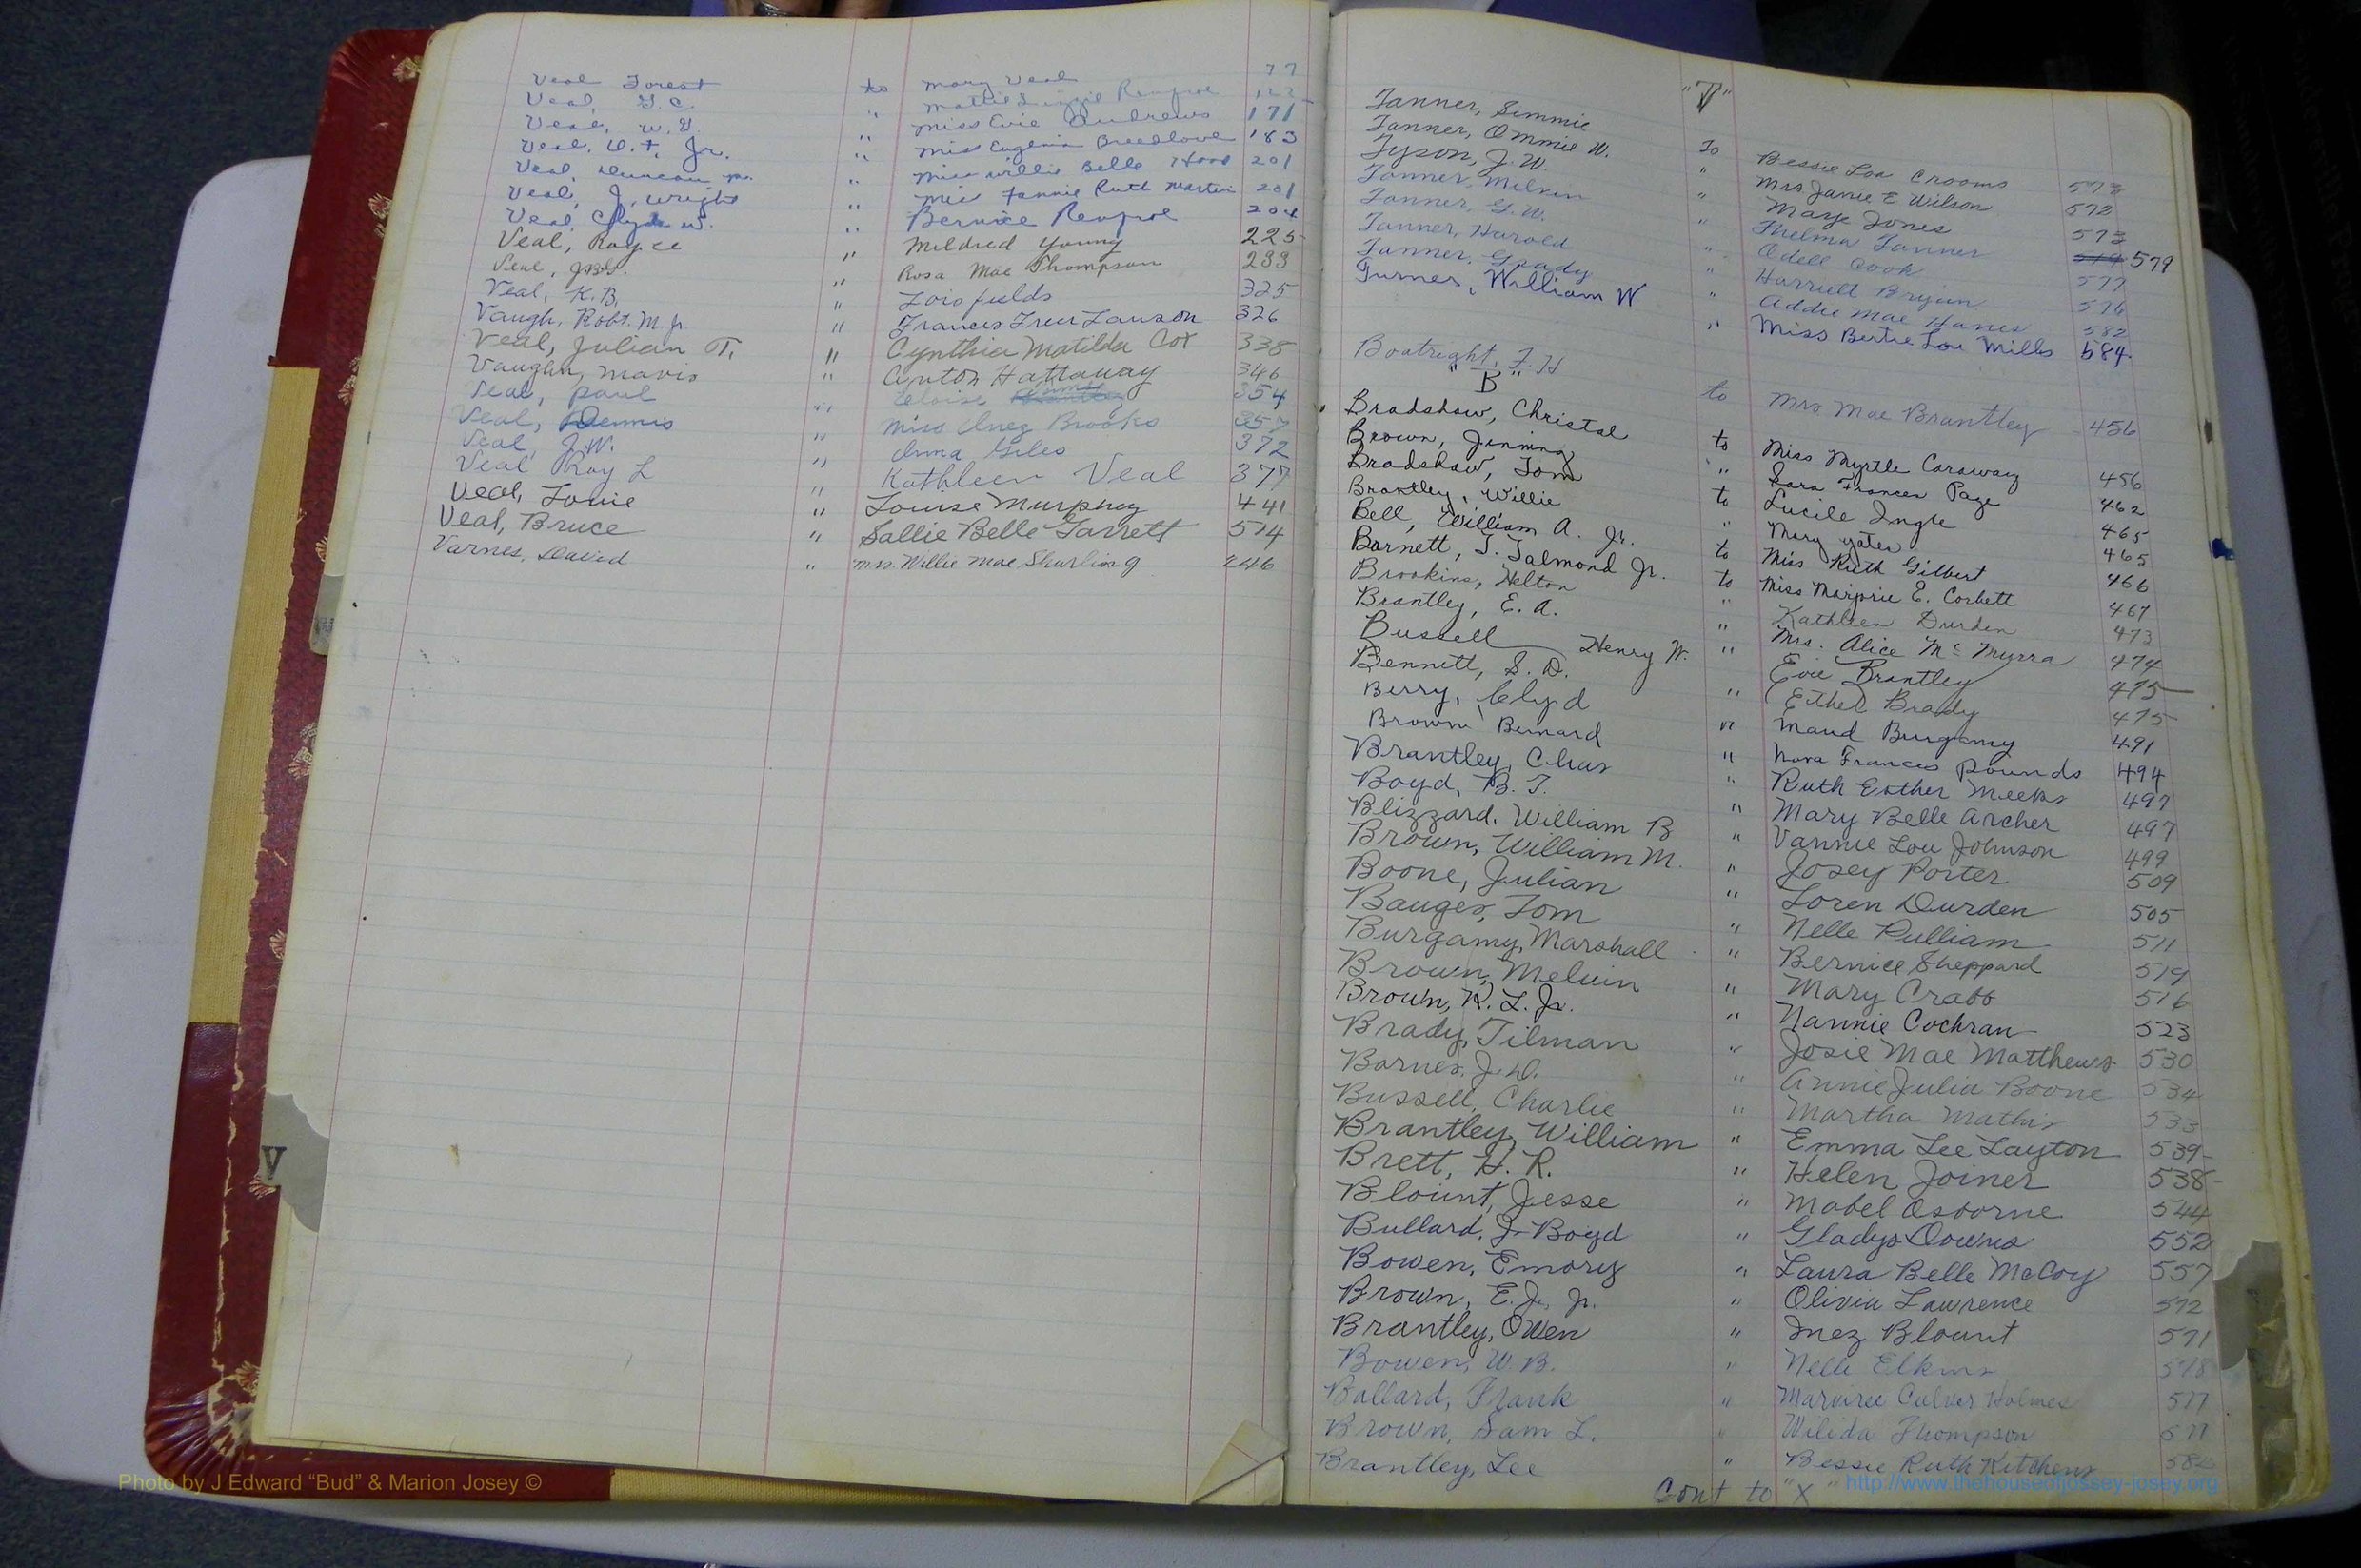 Veal Forest to Mary Veal 77
Veal, G.C. " Mattie Lizzie Renfroe 122
Veal, W.G. " Miss Evie Andrews 171
Veal, O.T. Jr. " Miss Eugenia Breedlove 183
Veal, Duncan " Miss Willie Belle Hood 201
Veal, J. Wright " Miss Fannie Ruth Martin 201
Veal, Clyde W. " Bernice Renfroe 204
Veal, Royce " Mildred Young 225
Veal, " Rosa Mae Thompson 233
Veal, K.B. " Lois Fields 325
Vaugh, Robt. M. Jr. " Frances Freer Lawson 326
Veal, Julian T. " Cynthia Matilda Cox 338
Vaughn, Mavis " Anton Hattaway 346
Veal, Paul " Eloise 354
Veal, Dennis " Miss Inez Brooks 357
Veal, J.W. " Anna Giles 372
Veal Roy L " Kathleen Veal 377
Veal, Louie " Louise Murphey 441
Veal, Bruce " Sallie Belle Garrett 514
Varnes, David " Mrs. Willie Mae Shurling 246
V
"T"
Tanner, Simmie To Bessie Lou Crooms 573
Tanner, Ommie W. " Mrs Janie E Wilson 572
Tyson, J.W. " Marye Jones 573
Tanner, Milvin " Thelma Tanner 579
Tanner, G.W. " Odell Cook 577
Tanner, Harold " Harriett Bryan 576
Tanner, Grady " Addie Mae Hanes 582
Turner, William W " Miss Bertie Lou Mills 584
Boatright, F.H to Mrs Mae Brantley 456
"B"
Bradshaw, Christal to Miss Myrtle Caraway 456
Brown, Jenning " Sara Frances Page 462
Bradshaw, Tom to Lucile Ingle 465
Brantley, Willie " Mary Yates 465
Bell, William A. Jr. to Miss Ruth Gilbert 466
Barnett, T. Talmond Jr. to Miss Marjorie E. Corbett 467
Brookins, Helton " Kathleen Durden 473
Brantley, E. A. " Mrs. Alice Mc Myrra 474
Bussell Henry W. " Evie Brantley 475
Bennett, S. D. Esther Brady 475
Berry, Clyd " Maud Burgamy 491
Brown Bernard " Nora Frances Pounds 494
Brantley, Chas " Ruth Esther Meeks 497
Boyd, B. T. " Mary Belle Archer 497
Blizzard, William B " Vannie Lou Johnson 499
Brown, William M. " Josey Porter 509
Boone, Julian " Loren Durden 505
Bauges, Tom " Nelle Pulliam 511
Burgamy, Marshall " Bernice Sheppard 519
Brown, Melvin " Mary Crabb 516
Brown, R. L. Jr. " Nannie Cochran 523
Brady, Tilman " Josie Mae Matthews 530
Barnes, J.D. " Annie Julia Boone 534
Bussell, Charlie " Martha Mathis 533
Brantley, William " Emma Lee Layton 539
Brett, H. R. " Helen Joiner 538
Blount, Jesse " Mabel Osborne 544
Bullard, J. Boyd " Gladys Downs 552
Bowen, Emory " Laura Belle McCoy 557
Brown, E.J. Jr. " Olivia Lawrence 572
Brantley, Owen " Inez Blount 571
Bowen, W.B. " Nelle Elkins 578
Ballard, Frank " Marviree Culver Holmes 577
Brown, Sam L. " Wilida Thompson 577
Brantley, Lee " Bessie Ruth Kitchens 582
Cont to "X"
Photo by J Edward “Bud” & Marion Josey ©
http://www.thehouseofjossey-josey.org